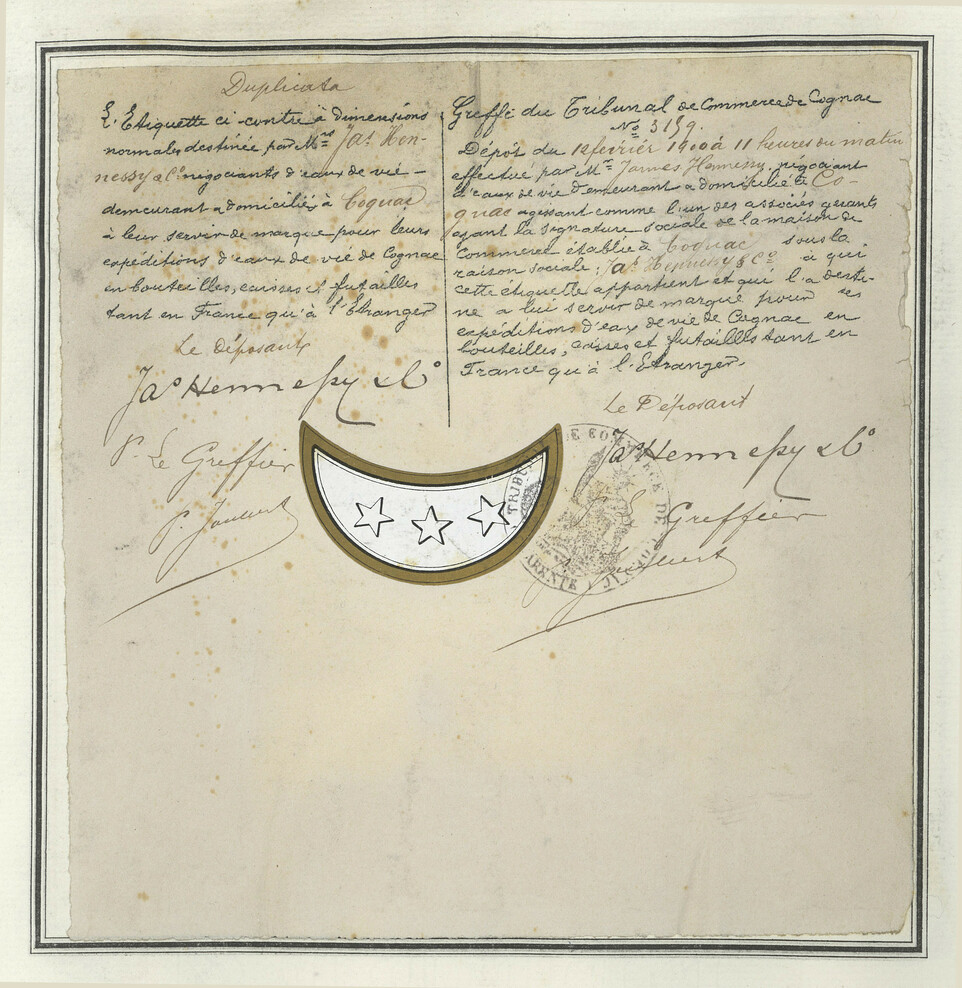 Duplicata
L'Etiquette ci-contre à dimensions
normales destinée par Mrs Jas Hen-
nessy & Co negociants d'eaux de vie –
demeurant & domiciliés à Cognac
à leur servir de marque pour leurs
expéditions d'eaux de vie de Cognac
en bouteilles, caisses et futailles
tant en France qu'à l'Etranger
Le Déposant
Jas Hennessy & Co
P. Le Greffier
Greffe du Tribunal de Commerce de Cognac
No 3159.
Dépôt du 12 février 1900 à 11 heures du matin
effectué par Mr James Hennessy, négociant
d'eaux de vie demeurant & domicilié à Co-
gnac agissant comme l'un des associés gerants
ayant la signature sociale de la maison de
Commerce établie à Cognac sous la
raison sociale : Jas Hennessy & Co à qui
cette étiquette appartient et qui l'a desti-
né a lui servir de marque pour ses
expéditions d'eaux de vie de Cognac en
bouteilles, caisses et futailles tant en
France qu'à l'Etranger.
Le Déposant
Jas Hennessy & Co
Greffier
TRIBU DE COMMERCE DE
ARENTE